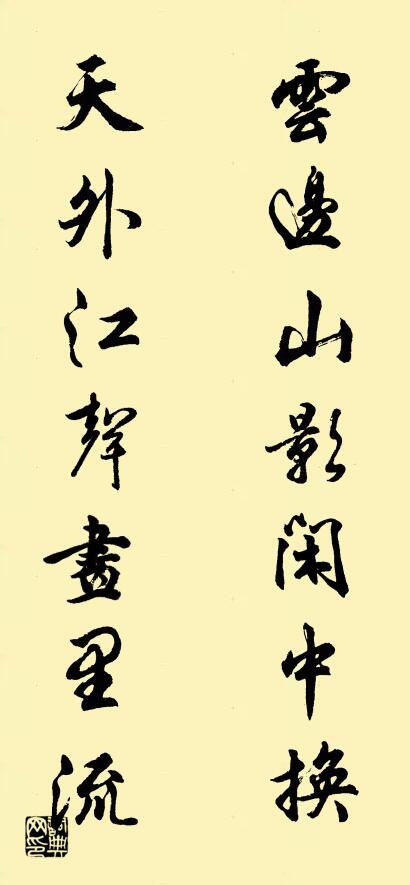 雲邊山影閑中換
天外江聲畫里流